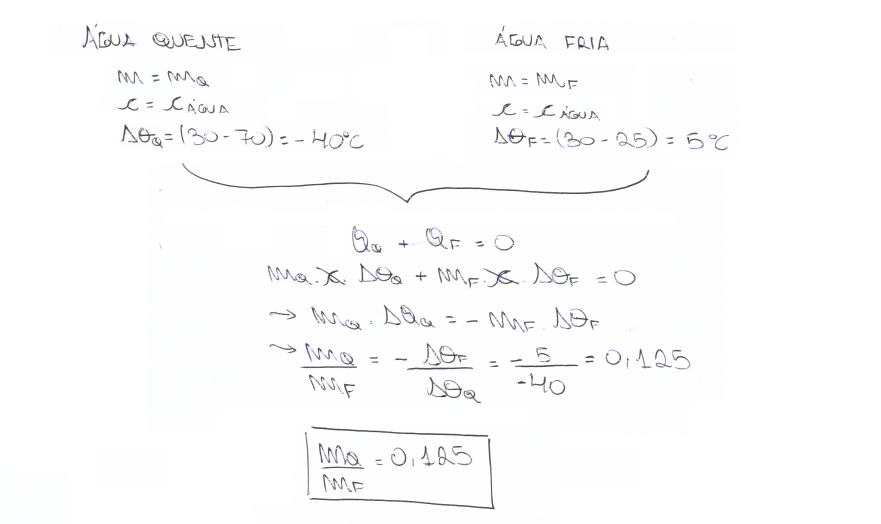 ÁGUA QUENTE
m = mQ
c = cÁGUA
ΔθQ = (30 - 70) = - 40°C
ÁGUA FRIA
m = mF
c = cÁGUA
ΔθF = (30 - 25) = 5°C
QQ + QF = 0
mQ . c . ΔθQ + mF . c . ΔθF = 0
→ mQ . ΔθQ = - mF . ΔθF
→ mQ/mF = - ΔθF/ΔθQ = - 5/-40 = 0,125
mQ/mF = 0,125